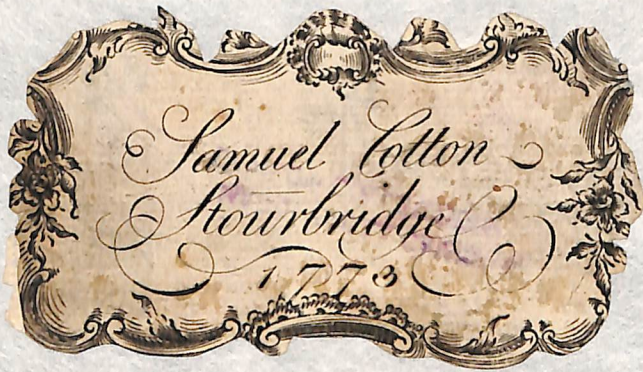 Samuel Cotton
Stourbridge
1773